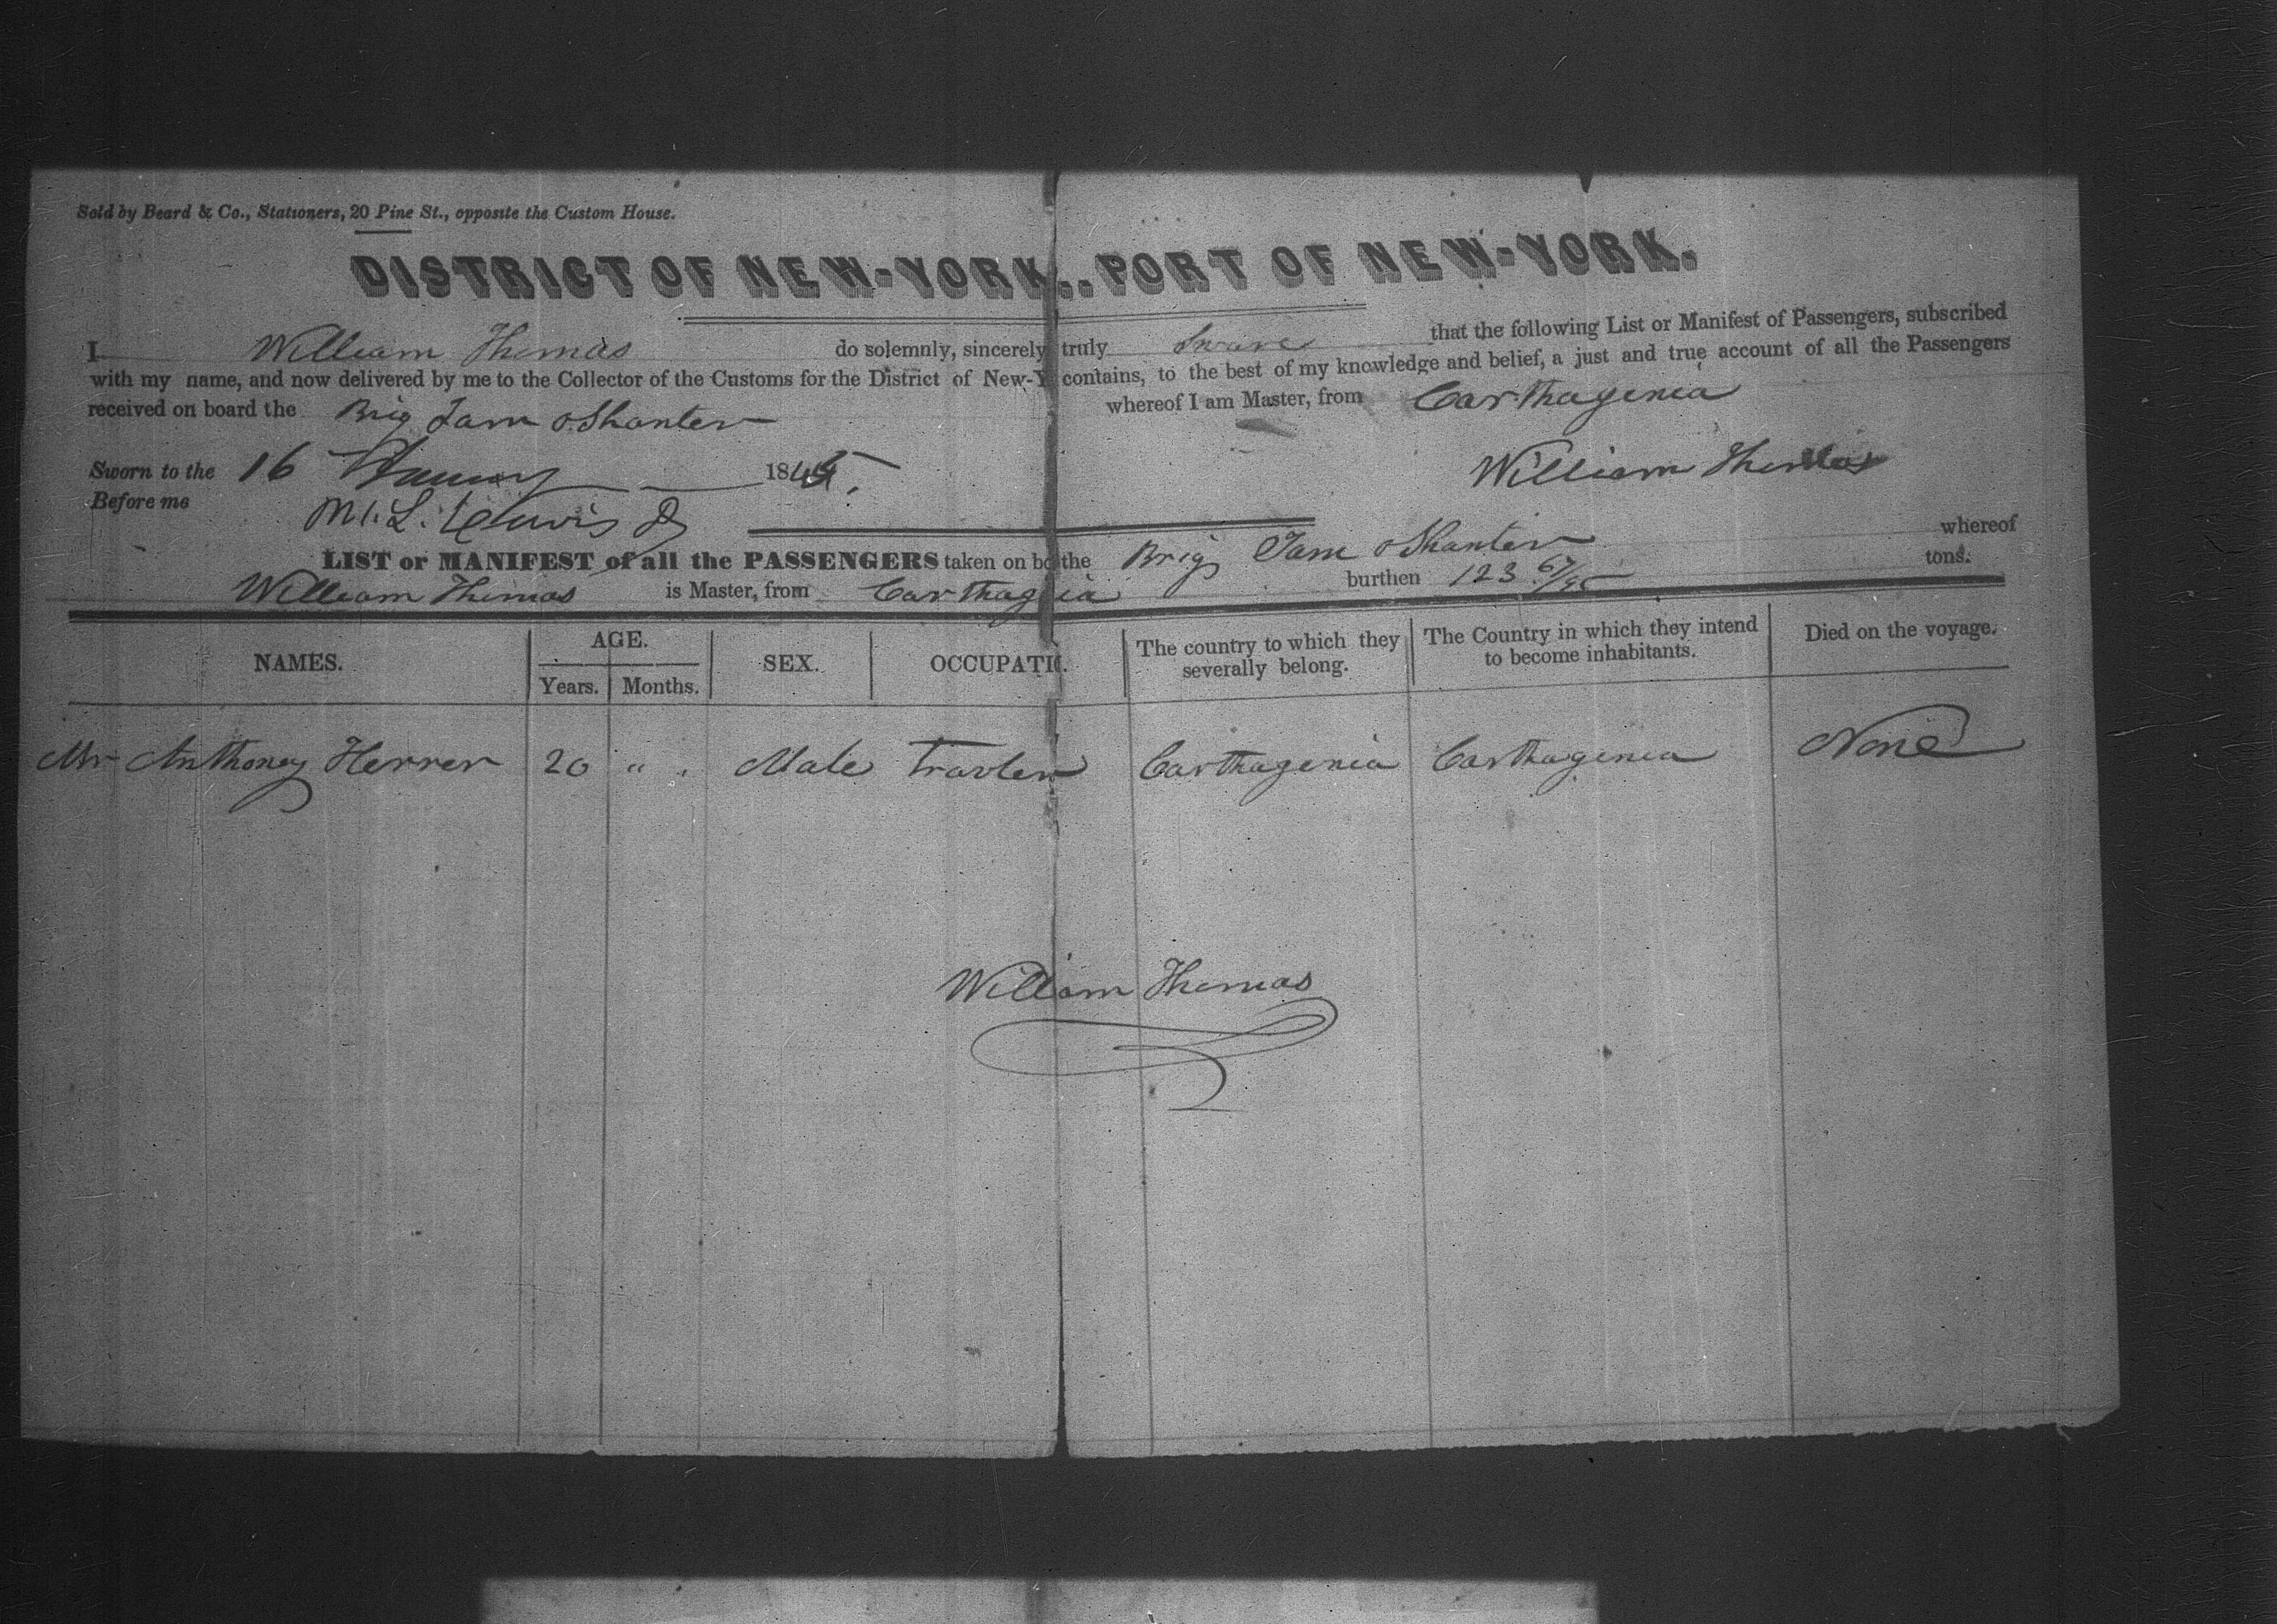 Sold by Beard & Co., Stationers, 20 Pine St., opposite the Custom House.
DISTRICT OF NEW-YORK..PORT OF NEW-YORK.
I William Thomas do solemnly, sincerely truly Sware that the following List or Manifest of Passengers, subscribed
with my name, and now delivered by me to the Collector of the Customs for the District of New-Y contains, to the best of my knowledge and belief, a just and true account of all the Passengers
received on board the Brig Tam oShanter whereof I am Master, from Carthagenia
Sworn to the 16 1845. William Thomas
Before me Lewis
LIST or MANIFEST of all the PASSENGERS taken on bo the Brig Tam oShanter whereof
William Thomas is Master, from Carthag ia burthen 123 67/95 tons.
NAMES. AGE. Years. Months. SEX. OCCUPATI . The country to which they severally belong. The Country in which they intend to become inhabitants. Died on the voyage.
Mr Anthoney Herrer 20 " " Male Travler Carthagenia Carthagenia None
William Thomas